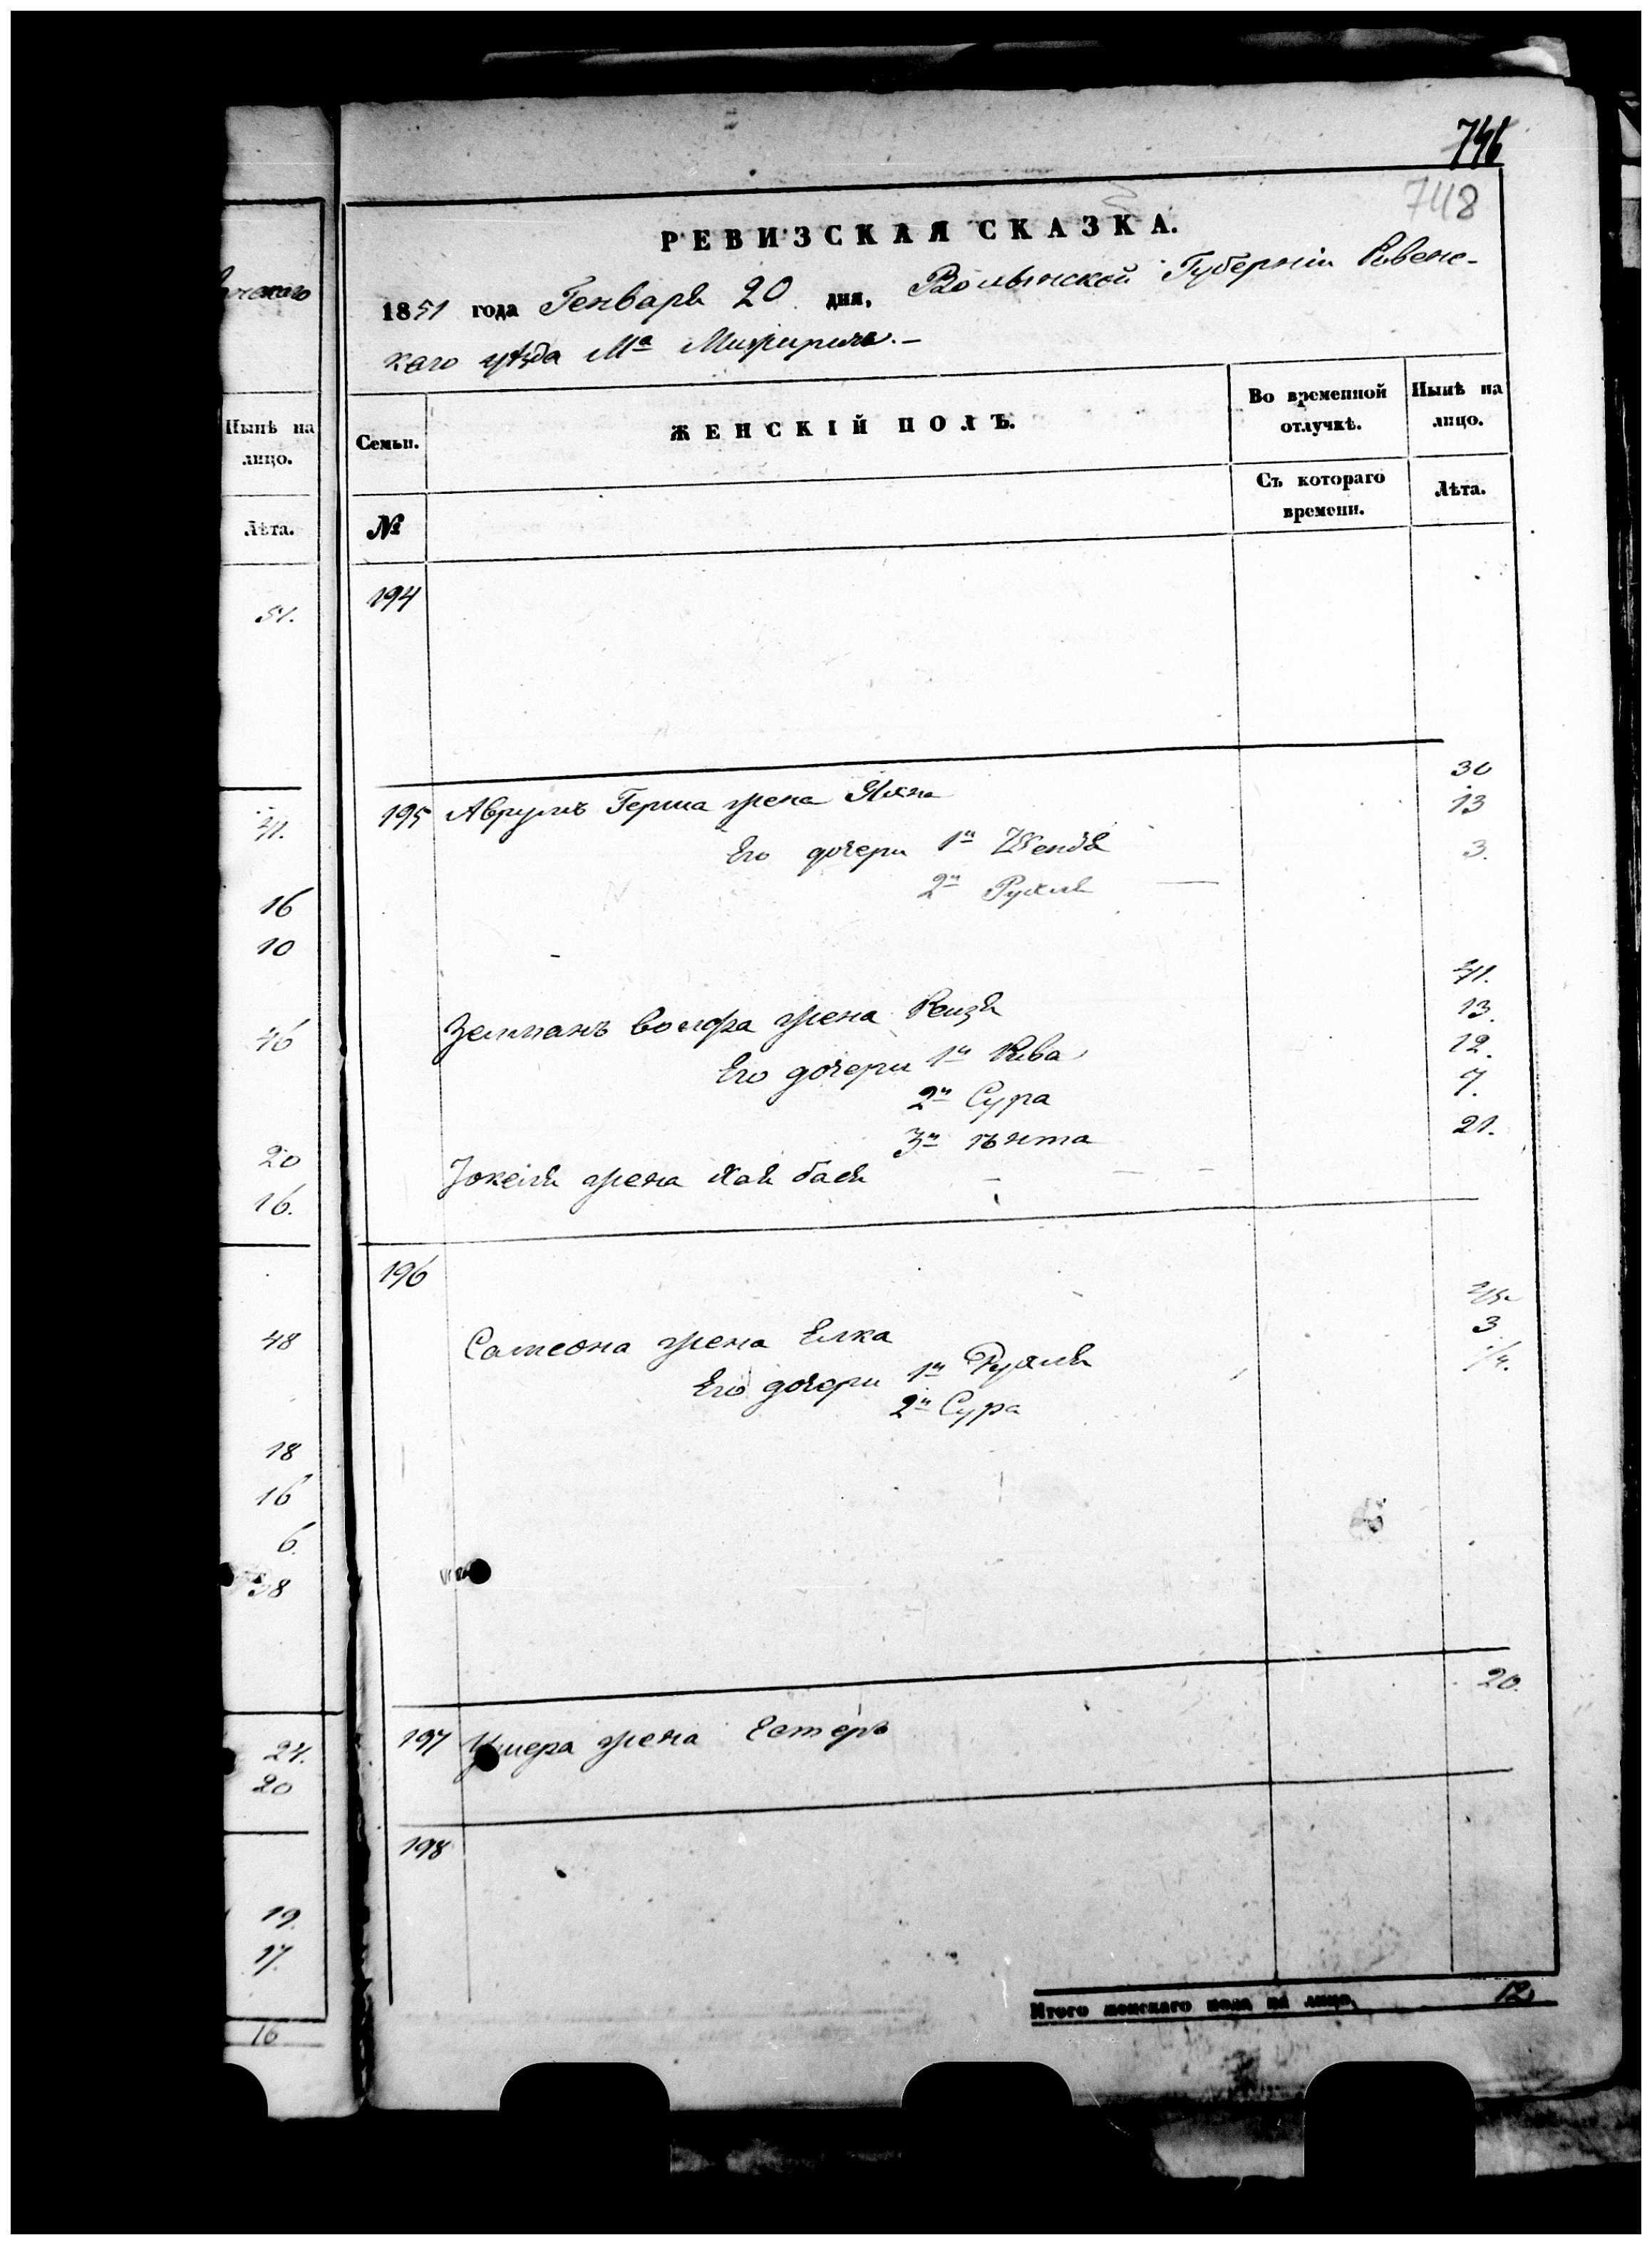 нскаго
Нынѣ на
лицо.
Лѣта.
51.
41.
16
10
46
20
16.
48
18
16
6.
38
24.
20
19.
17.
16
746
748
РЕВИЗСКАЯ СКАЗКА.
1851 года Генваря 20 дня, Волынской Губерніи Ровенс-
каго уѣзда Ма Межирича.-
Семьи. ЖЕНСКІЙ ПОЛЪ. Во временной отлучкѣ. Нынѣ на лицо.
№ Съ котораго времени. Лѣта.
194
195 Аврумъ Герша жена Яхна 30
Его дочери 1я Шендя 13
2я Рухля 3.
Зельманъ Вольфа жена Рейзя 41.
Его дочери 1я Рива 13.
2я Сура 12.
3я 7.
Іокеля жена Хая Бася 21.
196
Самсона жена Елка
Его дочери 1я Рухля 3
2я Сура
197 Ушера жена Естеръ 20.
198
Итого женскаго пола на лицо, 12